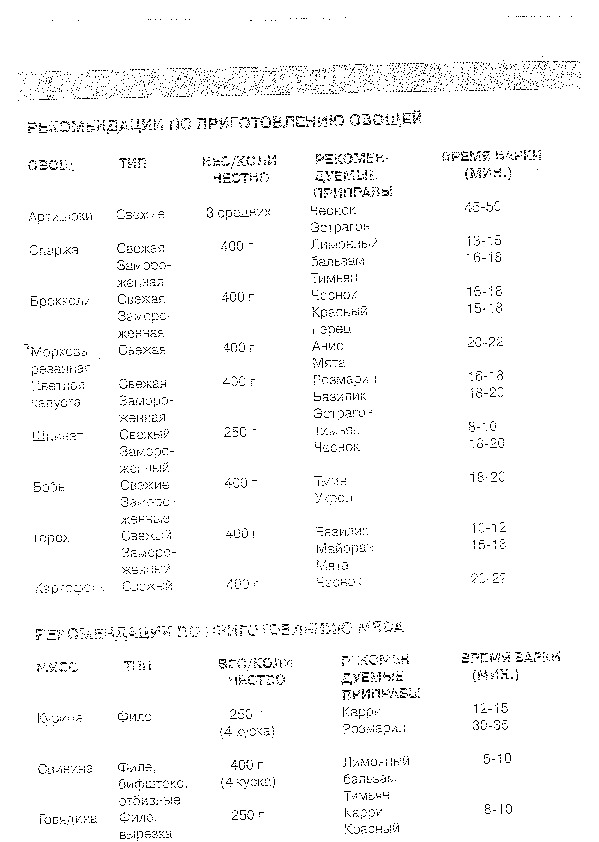 РЕКОМЕНДАЦИИ ПО ПРИГОТОВЛЕНИЮ ОВОЩЕЙ
ОВОЩ ТИП ВЕС/КОЛИ РЕКОМЕН- ВРЕМЯ ВАРКИ
ЧЕСТВО ДУЕМЫЕ (МИН.)
ПРИПРАВЫ
Артишоки Свежие 3 средних Чеснок 45-50
Эстрагон
Спаржа Свежая 400 г Лимонный 13-15
Заморо- бальзам 16-18
женная Тимьян
Брокколи Свежая 400 г Чеснок 16-18
Заморо- Красный 15-18
женная перец
Морковь Свежая 400 г Анис 20-22
резанная Мята
Цветная Свежая 400 г Розмарин 16-18
капуста Заморо- Базилик 18-20
женная Эстрагон
Шпинат Свежый 250 г Тимьян 8-10
Заморо- Чеснок 18-20
женный
Бобы Свежие 400 г Тмин 18-20
Заморо- Укроп
женные
Горох Свежий 400 г Базилик 10-12
Заморо- Майоран 15-18
женный Мята
Картофель Свежий 400 г Чеснок
РЕКОМЕНДАЦИИ ПО ПРИГОТОВЛЕНИЮ МЯСА
МЯСО ТИП ВЕС/КОЛИ РЕКОМЕН ВРЕМЯ ВАРКИ
ЧЕСТВО ДУЕМЫЕ (МИН.)
ПРИПРАВЫ
Курица Филе 250 г Карри 12-15
(4 куска) Розмарин 30-35
Свинина Филе, 400 г Лимонный 5-10
бифштекс, (4 куска) бальзам
отбивные Тимьян
Говядина Филе, 250 г Карри 8-10
вырезка Красный